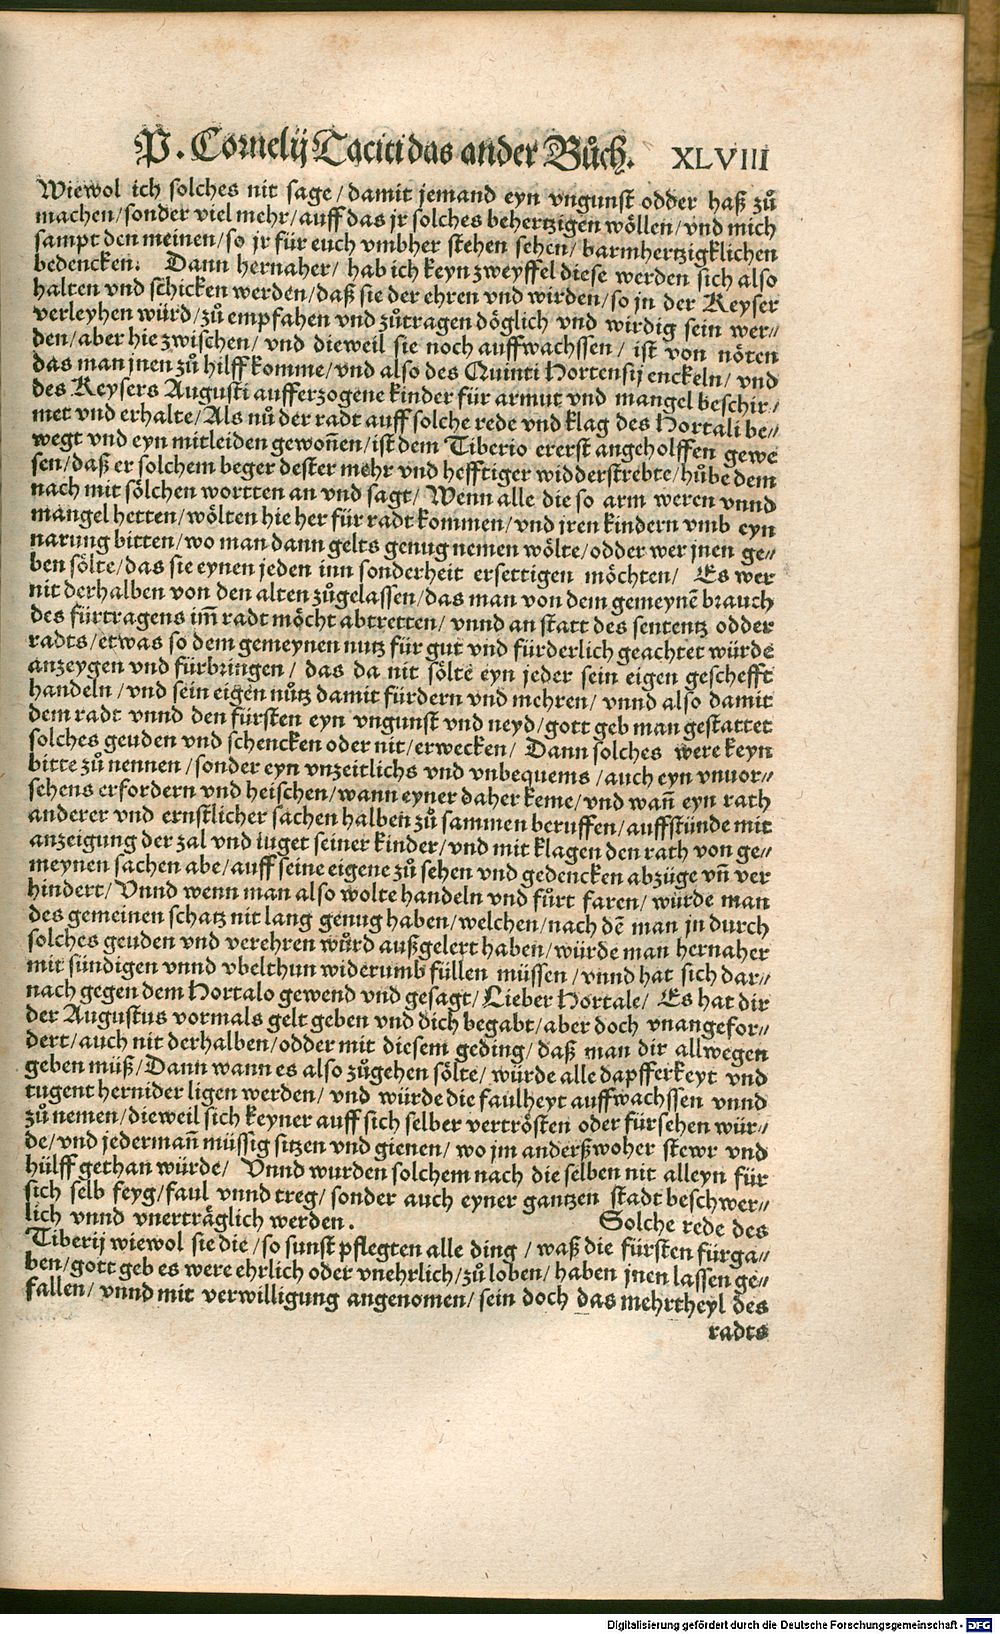 P. Cornelij Taciti das ander Bůch. XLVIII
Wiewol ich solches nit sage / damit jemand eyn vngunst odder haß zů
machen / sonder viel mehr / auff das jr solches behertzigen wöllen / vnd mich
sampt den meinen / so jr für euch vmbher stehen sehen / barmhertzigklichen
bedencken. Dann hernaher / hab ich keyn zweyffel diese werden sich also
halten vnd schicken werden / daß sie der ehren vnd wirden / so jn der Keyser
verleyhen würd / zů empfahen vnd zůtragen döglich vnd wirdig sein wer⸗
den / aber hie zwischen / vnd dieweil sie noch auffwachssen / ist von nöten
das man jnen zů hilff komme / vnd also des Quinti Hortensij enckeln / vnd
des Keysers Augusti aufferzogene kinder für armut vnd mangel beschir⸗
met vnd erhalte / Als nů der radt auff solche rede vnd klag des Hortali be⸗
wegt vnd eyn mitleiden gewoñen / ist dem Tiberio ererst angeholffen gewe
sen / daß er solchem beger dester mehr vnd hefftiger widderstrebte / hůbe dem
nach mit sölchen wortten an vnd sagt / Wenn alle die so arm weren vnnd
mangel hetten / wölten hie her für radt kommen / vnd jren kindern vmb eyn
narung bitten / wo man dann gelts genug nemen wölte / odder wer jnen ge⸗
ben sölte / das sie eynen jeden inn sonderheit ersettigen möchten / Es wer
nit derhalben von den alten zůgelassen / das man von dem gemeynē brauch
des fürtragens im̃ radt möcht abtretten / vnnd an statt des sententz odder
radts / etwas so dem gemeynen nutz für gut vnd fürderlich geachtet würde
anzeygen vnd fürbringen / das da nit sölte eyn jeder sein eigen geschefft
handeln / vnd sein eigen nůtz damit fürdern vnd mehren / vnnd also damit
dem radt vnnd den fürsten eyn vngunst vnd neyd / gott geb man gestattet
solches geuden vnd schencken oder nit / erwecken / Dann solches were keyn
bitte zů nennen / sonder eyn vnzeitlichs vnd vnbequems / auch eyn vnuor⸗
sehens erfordern vnd heischen / wann eyner daher keme / vnd wañ eyn rath
anderer vnd ernstlicher sachen halben zů sammen beruffen / auffstünde mit
anzeigung der zal vnd iuget seiner kinder / vnd mit klagen den rath von ge⸗
meynen sachen abe / auff seine eigene zů sehen vnd gedencken abzüge vñ ver
hindert / Vnnd wenn man also wolte handeln vnd fůrt faren / würde man
des gemeinen schatz nit lang genug haben / welchen / nach dē man jn durch
solches geuden vnd verehren wůrd außgelert haben / würde man hernaher
mit sündigen vnnd vbelthun widerumb füllen müssen / vnnd hat sich dar⸗
nach gegen dem Hortalo gewend vnd gesagt / Lieber Hortale / Es hat dir
der Augustus vormals gelt geben vnd dich begabt / aber doch vnangefor⸗
dert / auch nit derhalben / odder mit diesem geding / daß man dir allwegen
geben müß / Dann wann es also zůgehen sölte / würde alle dapfferkeyt vnd
tugent hernider ligen werden / vnd würde die faulheyt auffwachssen vnnd
zů nemen / dieweil sich keyner auff sich selber vertrösten oder fürsehen wür⸗
de / vnd jedermañ müssig sitzen vnd gienen / wo jm anderßwoher stewr vnd
hülff gethan würde / Vnnd wurden solchem nach die selben nit alleyn für
sich selb feyg / faul vnnd treg / sonder auch eyner gantzen stadt beschwer⸗
lich vnnd vnerträglich werden. Solche rede des
Tiberij wiewol sie die / so sunst pflegten alle ding / waß die fürsten fürga⸗
ben / gott geb es were ehrlich oder vnehrlich / zů loben / haben jnen lassen ge⸗
fallen / vnnd mit verwilligung angenomen / sein doch das mehrtheyl des
radts
Digitalisierung gefördert durch die Deutsche Forschungsgemeinschaft - DFG